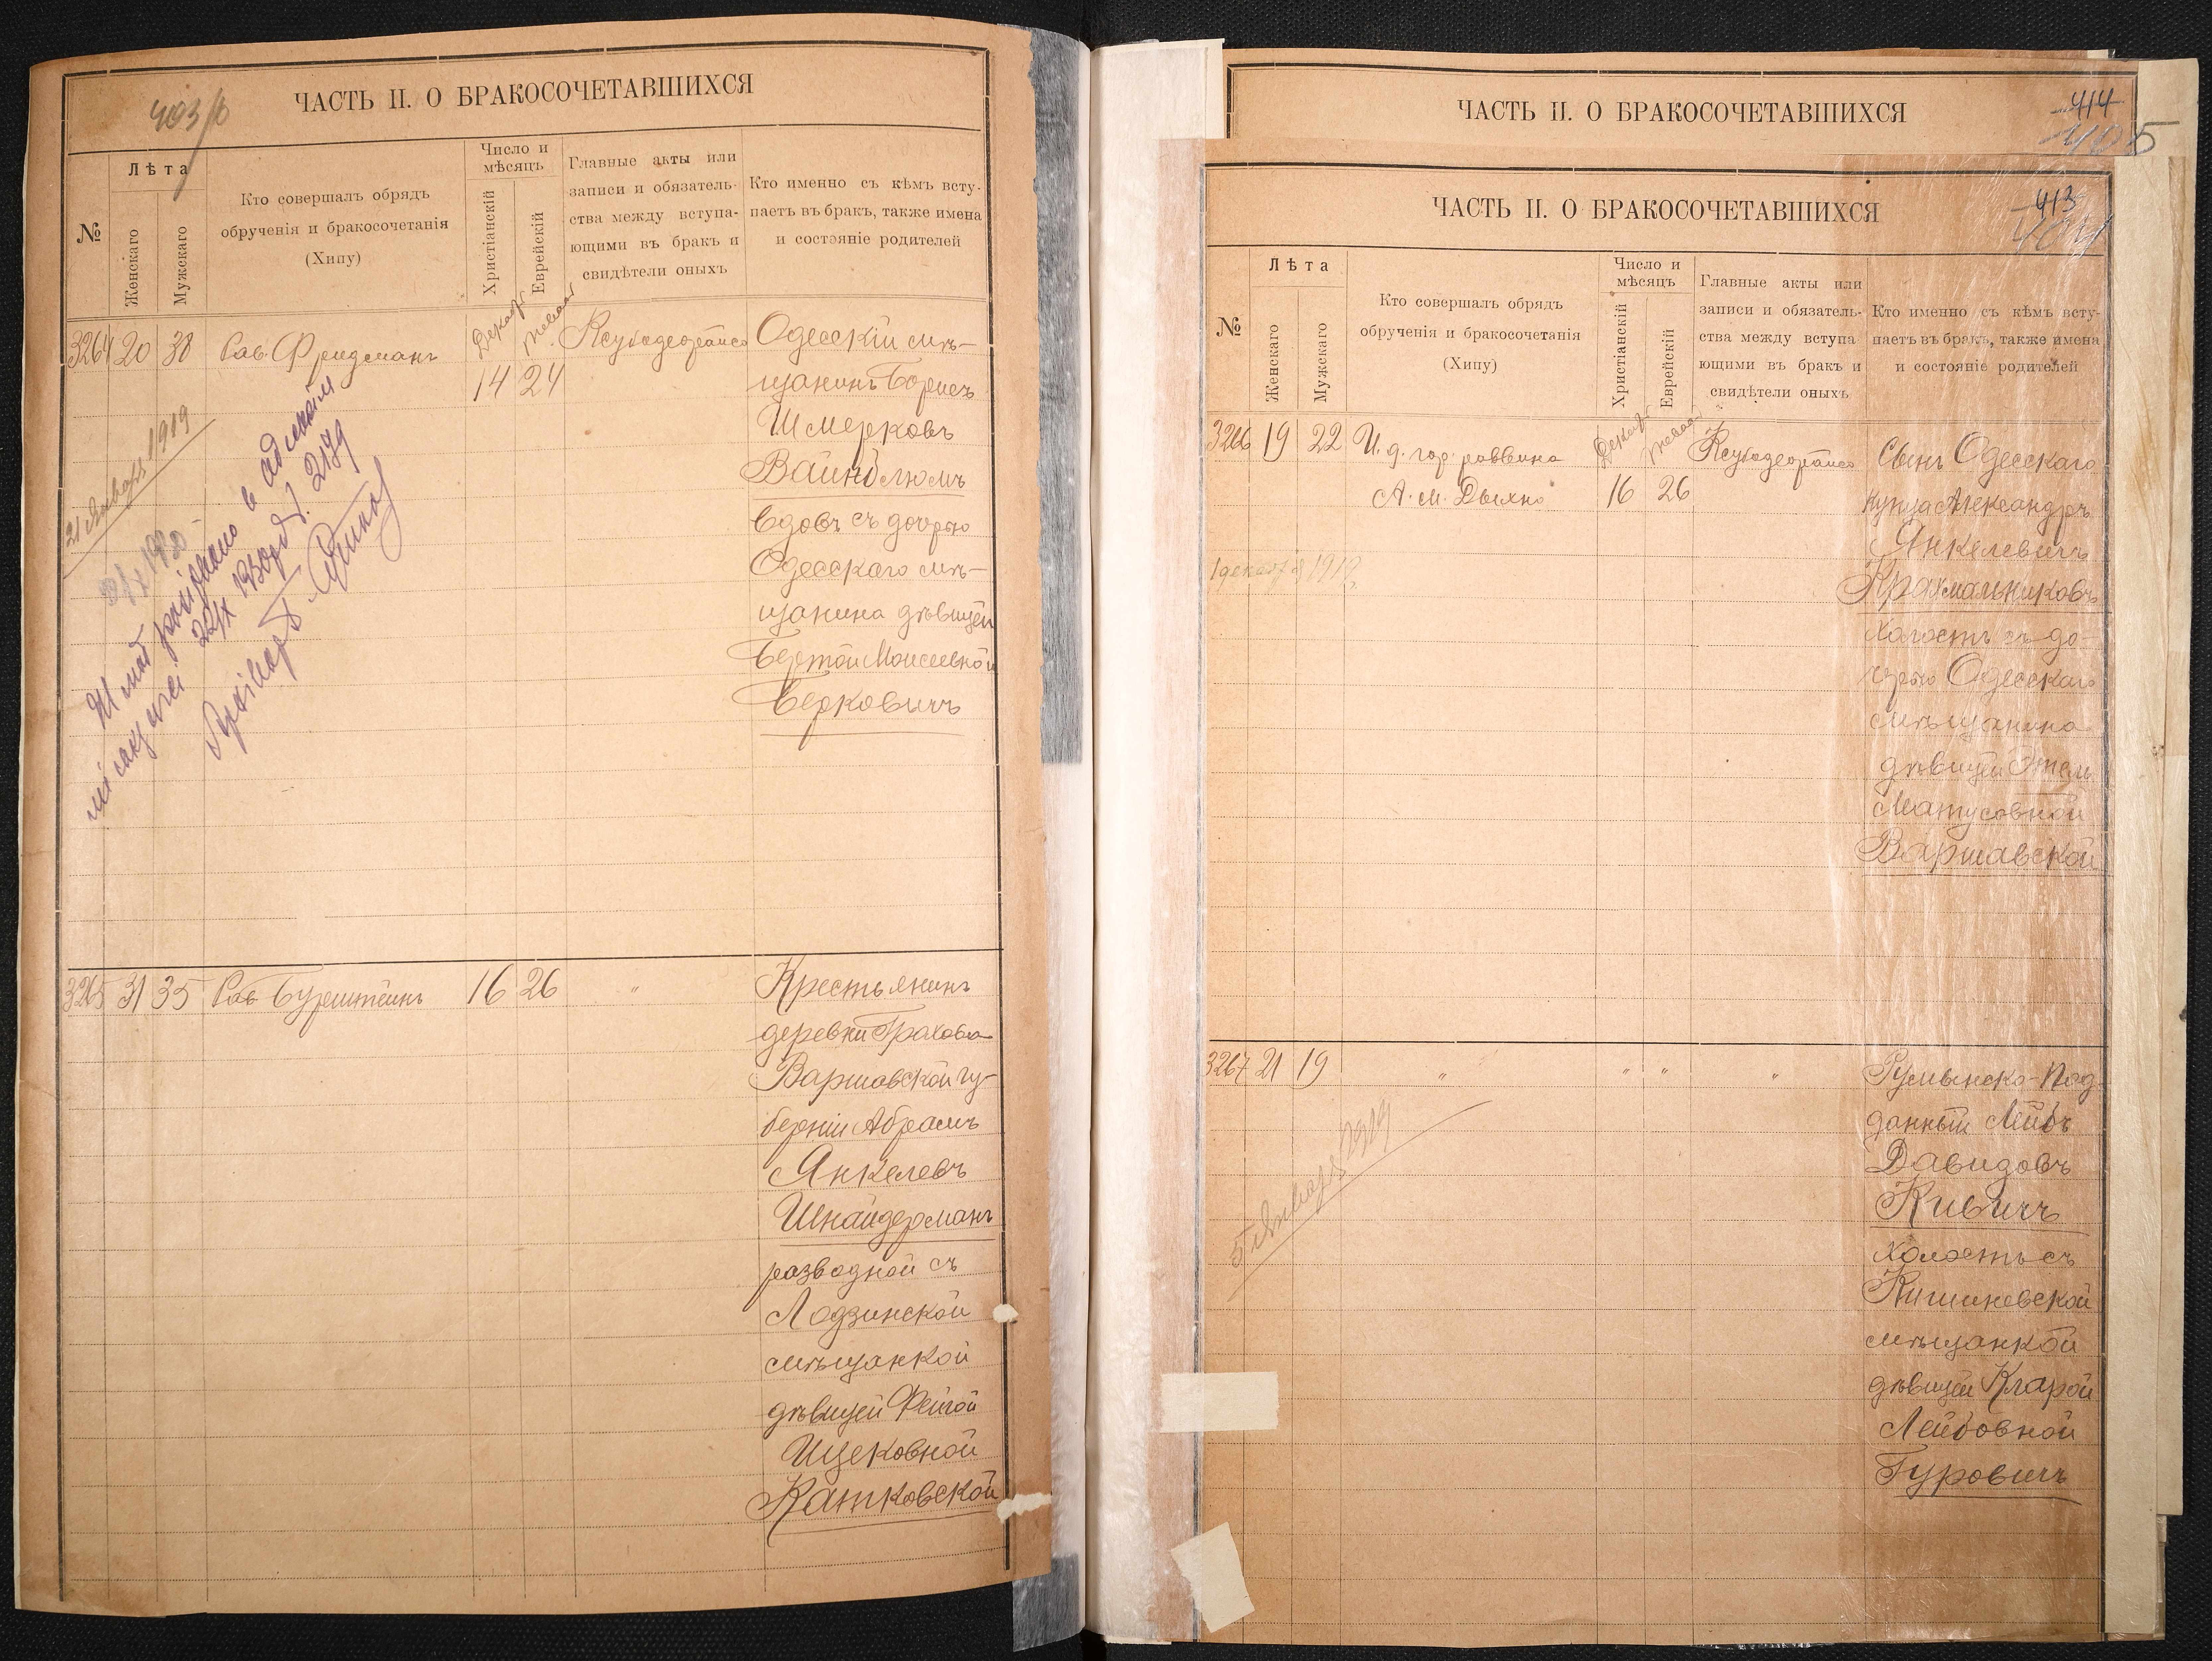 403 об
ЧАСТЬ II. О БРАКОСОЧЕТАВШИХСЯ
№
Лѣта
Женскаго
Мужскаго
Кто совершалъ обрядъ
обрученія и бракосочетанія
(Хипу)
Число и
мѣсяцъ
Христіанскій
Еврейскій
Главные акты или
записи и обязатель-
ства между вступа-
ющими въ бракъ и
свидѣтели оныхъ
Кто именно съ кѣмъ всту-
паетъ въ бракъ, также имена
и состояніе родителей
3264 20 38 Рав. Фридманъ
Декабр
14 24
Одесскій мѣ-
щанинъ Борисъ
Шмерковъ
Вайнблюмъ
вдовъ съ дочерью
Одесскаго мѣ-
щанина дѣвицей
Бертой Моисеевной
Берковичъ
21 Января 1919
3265 31 35 Рав. Бурштейнъ 16 26 "
Крестьянинъ
деревни Грахова
Варшавской гу-
берніи Абрамъ
Янкелевъ
Шнайдерманъ
разводной съ
Лодзинской
мѣщанкой
дѣвицей Фейгой
Ицековной
Катковской
ЧАСТЬ II. О БРАКОСОЧЕТАВШИХСЯ
414
405
ЧАСТЬ II. О БРАКОСОЧЕТАВШИХСЯ
413
404
№
Лѣта
Женскаго
Мужскаго
Кто совершалъ обрядъ
обрученія и бракосочетанія
(Хипу)
Число и
мѣсяцъ
Христіанскій
Еврейскій
Главные акты или
записи и обязатель-
ства между вступа-
ющими въ бракъ и
свидѣтели оныхъ
Кто именно съ кѣмъ всту-
паетъ въ бракъ, также имена
и состояніе родителей
3266 19 22 И. д. гор. раввина
А. М. Дыхно
Декабр
16 26
Сынъ Одесскаго
купца Александръ
Янкелевичъ
Крахмальниковъ
холостъ съ до-
черью Одесскаго
мѣщанина
дѣвицей Этель
Матусовной
Варшавской
1 декабря 1919
3267 21 19 " " " "
Румынско-Под-
данный Лейбъ
Давидовъ
Кивичъ
холостъ съ
Кишиневской
мѣщанкой
дѣвицей Кларой
Лейбовной
Гуровичъ
5 Января 1919